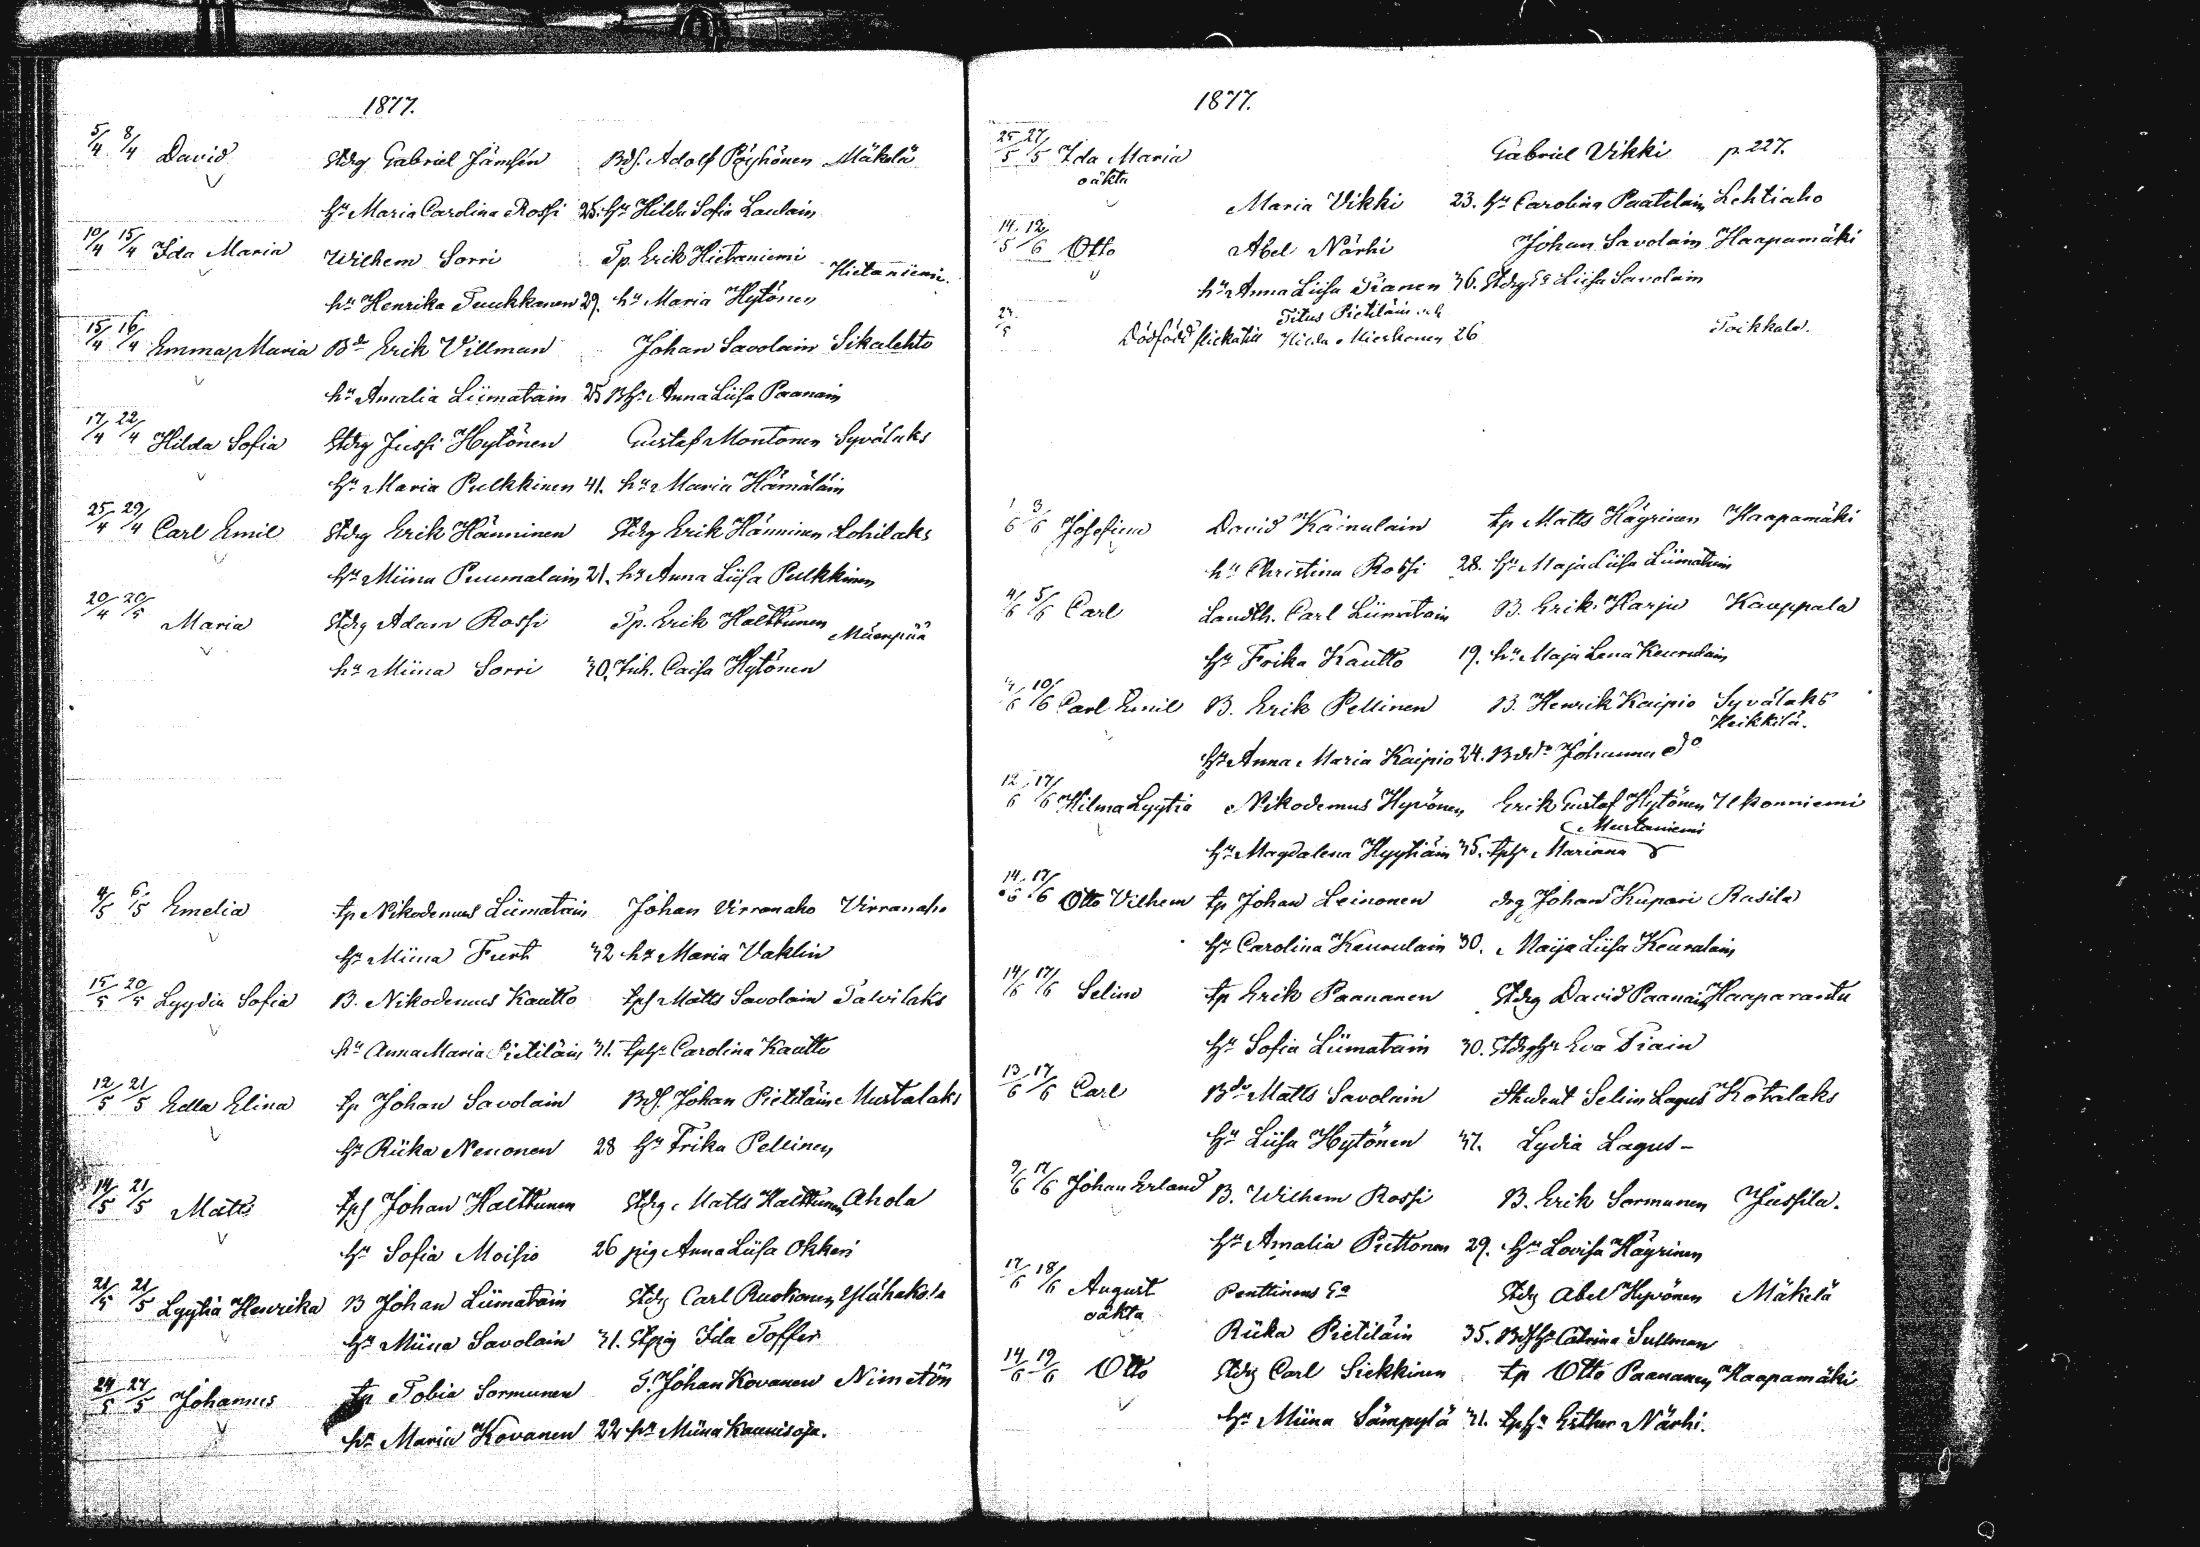 1877.
5/4 8/4 David Stdrg Gabriel Jämsén Bds. Adolf Pöyhönen Mäkelä
hu Maria Carolina Rossi 25. hu Hilda Sofia Laulain
10/4 15/4 Ida Maria Wilhem Sorri Tp. Erik Hietaniemi Hietaniemi.
hu Henrika Tuuhkanen 29. hu Maria Hytönen
15/4 16/4 Emma Maria Bd Erik Villman Johan Savolain Sikalehto
hu Amalia Liimatain 25 Bhu Anna Liisa Paanain
17/4 22/4 Hilda Sofia Stdrg Jussi Hytönen Gustaf Montonen Syvälaks
hu Maria Pulkkinen 41. hu Maria Hämäläin
25/4 29/4 Carl Emil Stdrg Erik Hänninen Stdrg Erik Hänninen Lohilaks
hu Miina Puumalain 21. hu Anna Liisa Pulkkinen
20/4 20/5 Maria Stdrg Adam Rossi Tp. Erik Halttunen Mäenpää
hu Miina Sorri 30. Inh. Caisa Hytönen
4/5 6/5 Emelia tp Nikodemus Liimatain Johan Virranaho Virranaho
hu Miina Furt 32 hu Maria Vaklin
15/5 20/5 Lyydia Sofia B. Nikodemus Kautto tps Matts Savolain Talvilaks
hu Anna Maria Pietiläin 31. tphu Carolina Kautto
12/5 21/5 Edla Elina tp Johan Savolain Bds. Johan Pietiläin Mustalaks
hu Riika Nenonen 28 hu Frika Pellinen
14/5 21/5 Matts tps Johan Halttunen Stdrg Matts Halttunen Ahola
hu Sofia Moisio 26 pig Anna Liisa Okkeri
21/5 21/5 Lyytia Henrika B Johan Liimatain Stdrg Carl Ruokonen Ylähakola
hu Miina Savolain 31. Stpig Ida Toffer
24/5 27/5 Johannes tp Tobia Sormunen T. Johan Kovanen Nimetön
hu Maria Kovanen 22 hu Miina Kaunisoja.
1877.
25/5 27/5 Ida Maria Gabriel Vikki p. 227.
oäkta
Maria Vikki 23. hu Carolina Paatelain Lehtiaho
14/5 12/6 Otto Abel Närhi Johan Savolain Haapamäki
hu Anna Liisa Pianen 36. Stdrg Liisa Savolain
Titus Pietiläin och
27/5 Dödfödd flicka till Hilda Mieskonen 26 Toikkala.
1/6 3/6 Josefina David Kainulain tp Matts Häyrinen Haapamäki
hu Christina Rossi 28. hu Maja Liisa Liimatain
4/6 5/6 Carl Landth. Carl Liimatain B. Erik Harju Kauppala
hu Frika Kautto 19. hu Maja Lena Keurulain
10/6 Carl Emil B. Erik Pellinen B. Henrik Kaipio Syvälaks
Heikkilä.
hu Anna Maria Kaipio 24. Johanna do
12/6 17/6 Hilma Lyytia Nikodemus Hyvönen Erik Gustaf Hytönen Ukonniemi
Mustaniemi
hu Magdalena Hyytiäin 35. tphu Marianna
14/6 17/6 Otto Vilhem tp Johan Leinonen drg Johan Kupari Rasila
hu Carolina Keurulain 30. Maija Liisa Keurulain
14/6 17/6 Selim tp Erik Paananen Stdrg David Paanain Haaparanta
hu Sofia Liimatain 30. Stdrghu Eva Piain
13/6 17/6 Carl Bde Matts Savolain Student Selim Lagus Kotalaks
hu Liisa Hytönen 37. Lydia Lagus -
9/6 17/6 Johan Erland B. Wilhem Rossi B. Erik Sormunen Jussila.
hu Amalia Puttonen 29. hu Lovisa Häyrinen
17/6 18/6 August Penttinens Stdrg Abel Hyvönen Mäkelä
oäkta
Riika Pietiläin 35. Bdshu Catrina Sullman
14/6 19/6 Otto Stdrg Carl Siekkinen tp Otto Paananen Haapamäki
hu Miina Sämpylä 31. tphu Esther Närhi.